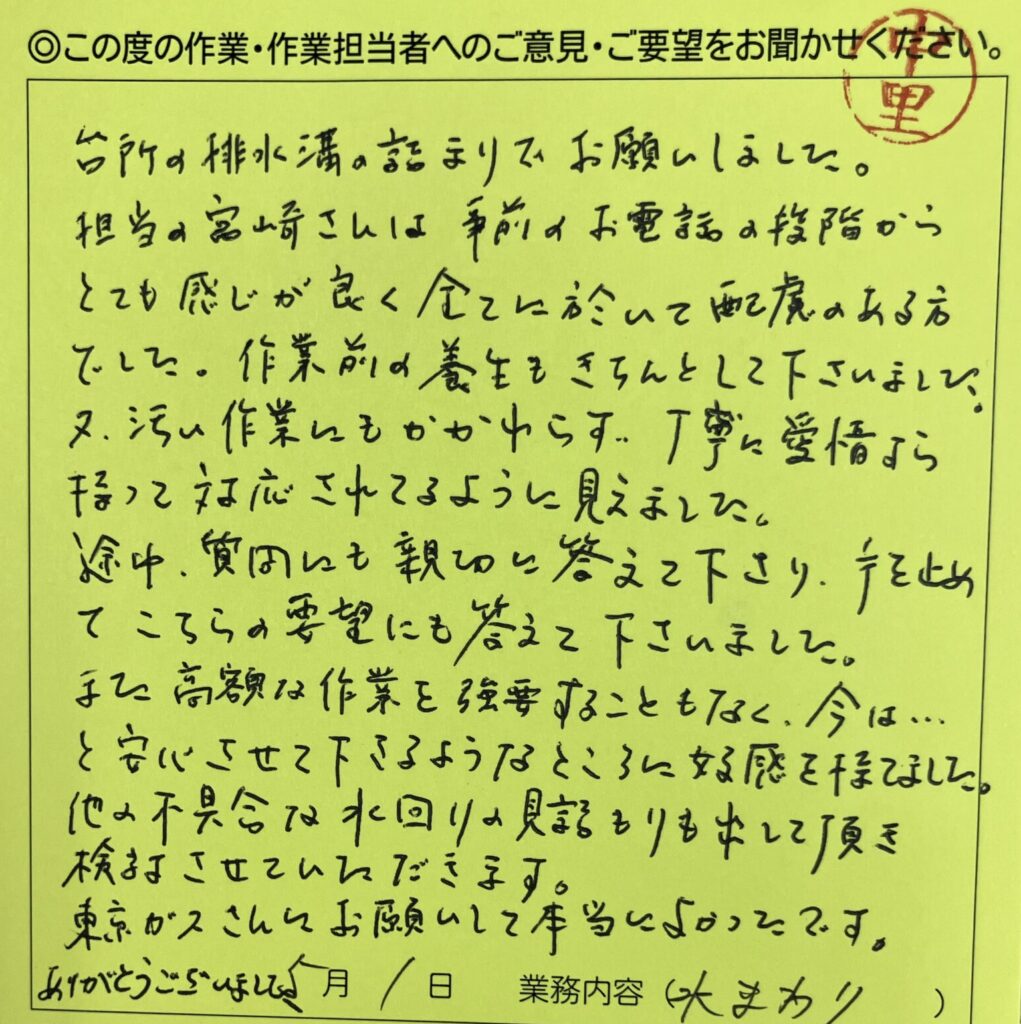 ◎この度の作業・作業担当者へのご意見・ご要望をお聞かせください。
中里
台所の排水溝の詰まりで お願いしました。
担当の宮崎さんは 事前のお電話の段階から
とても感じが良く 全てに於いて配慮のある方
でした。作業前の養生もきちんとして下さいました。
又、汚い作業にもかかわらず、丁寧に愛情すら
持って対応されてるように見えました。
途中、質問にも親切に答えて下さり、手を止め
てこちらの要望にも答えて下さいました。
また高額な作業を強要することもなく、今は…
と安心させて下さるようなところに好感を持てました。
他の不具合な水回りの見積もりも出して頂き
検討させていただきます。
東京ガスさんにお願いして本当によかったです。
ありがとうございました
5月 1日 業務内容(水まわり)